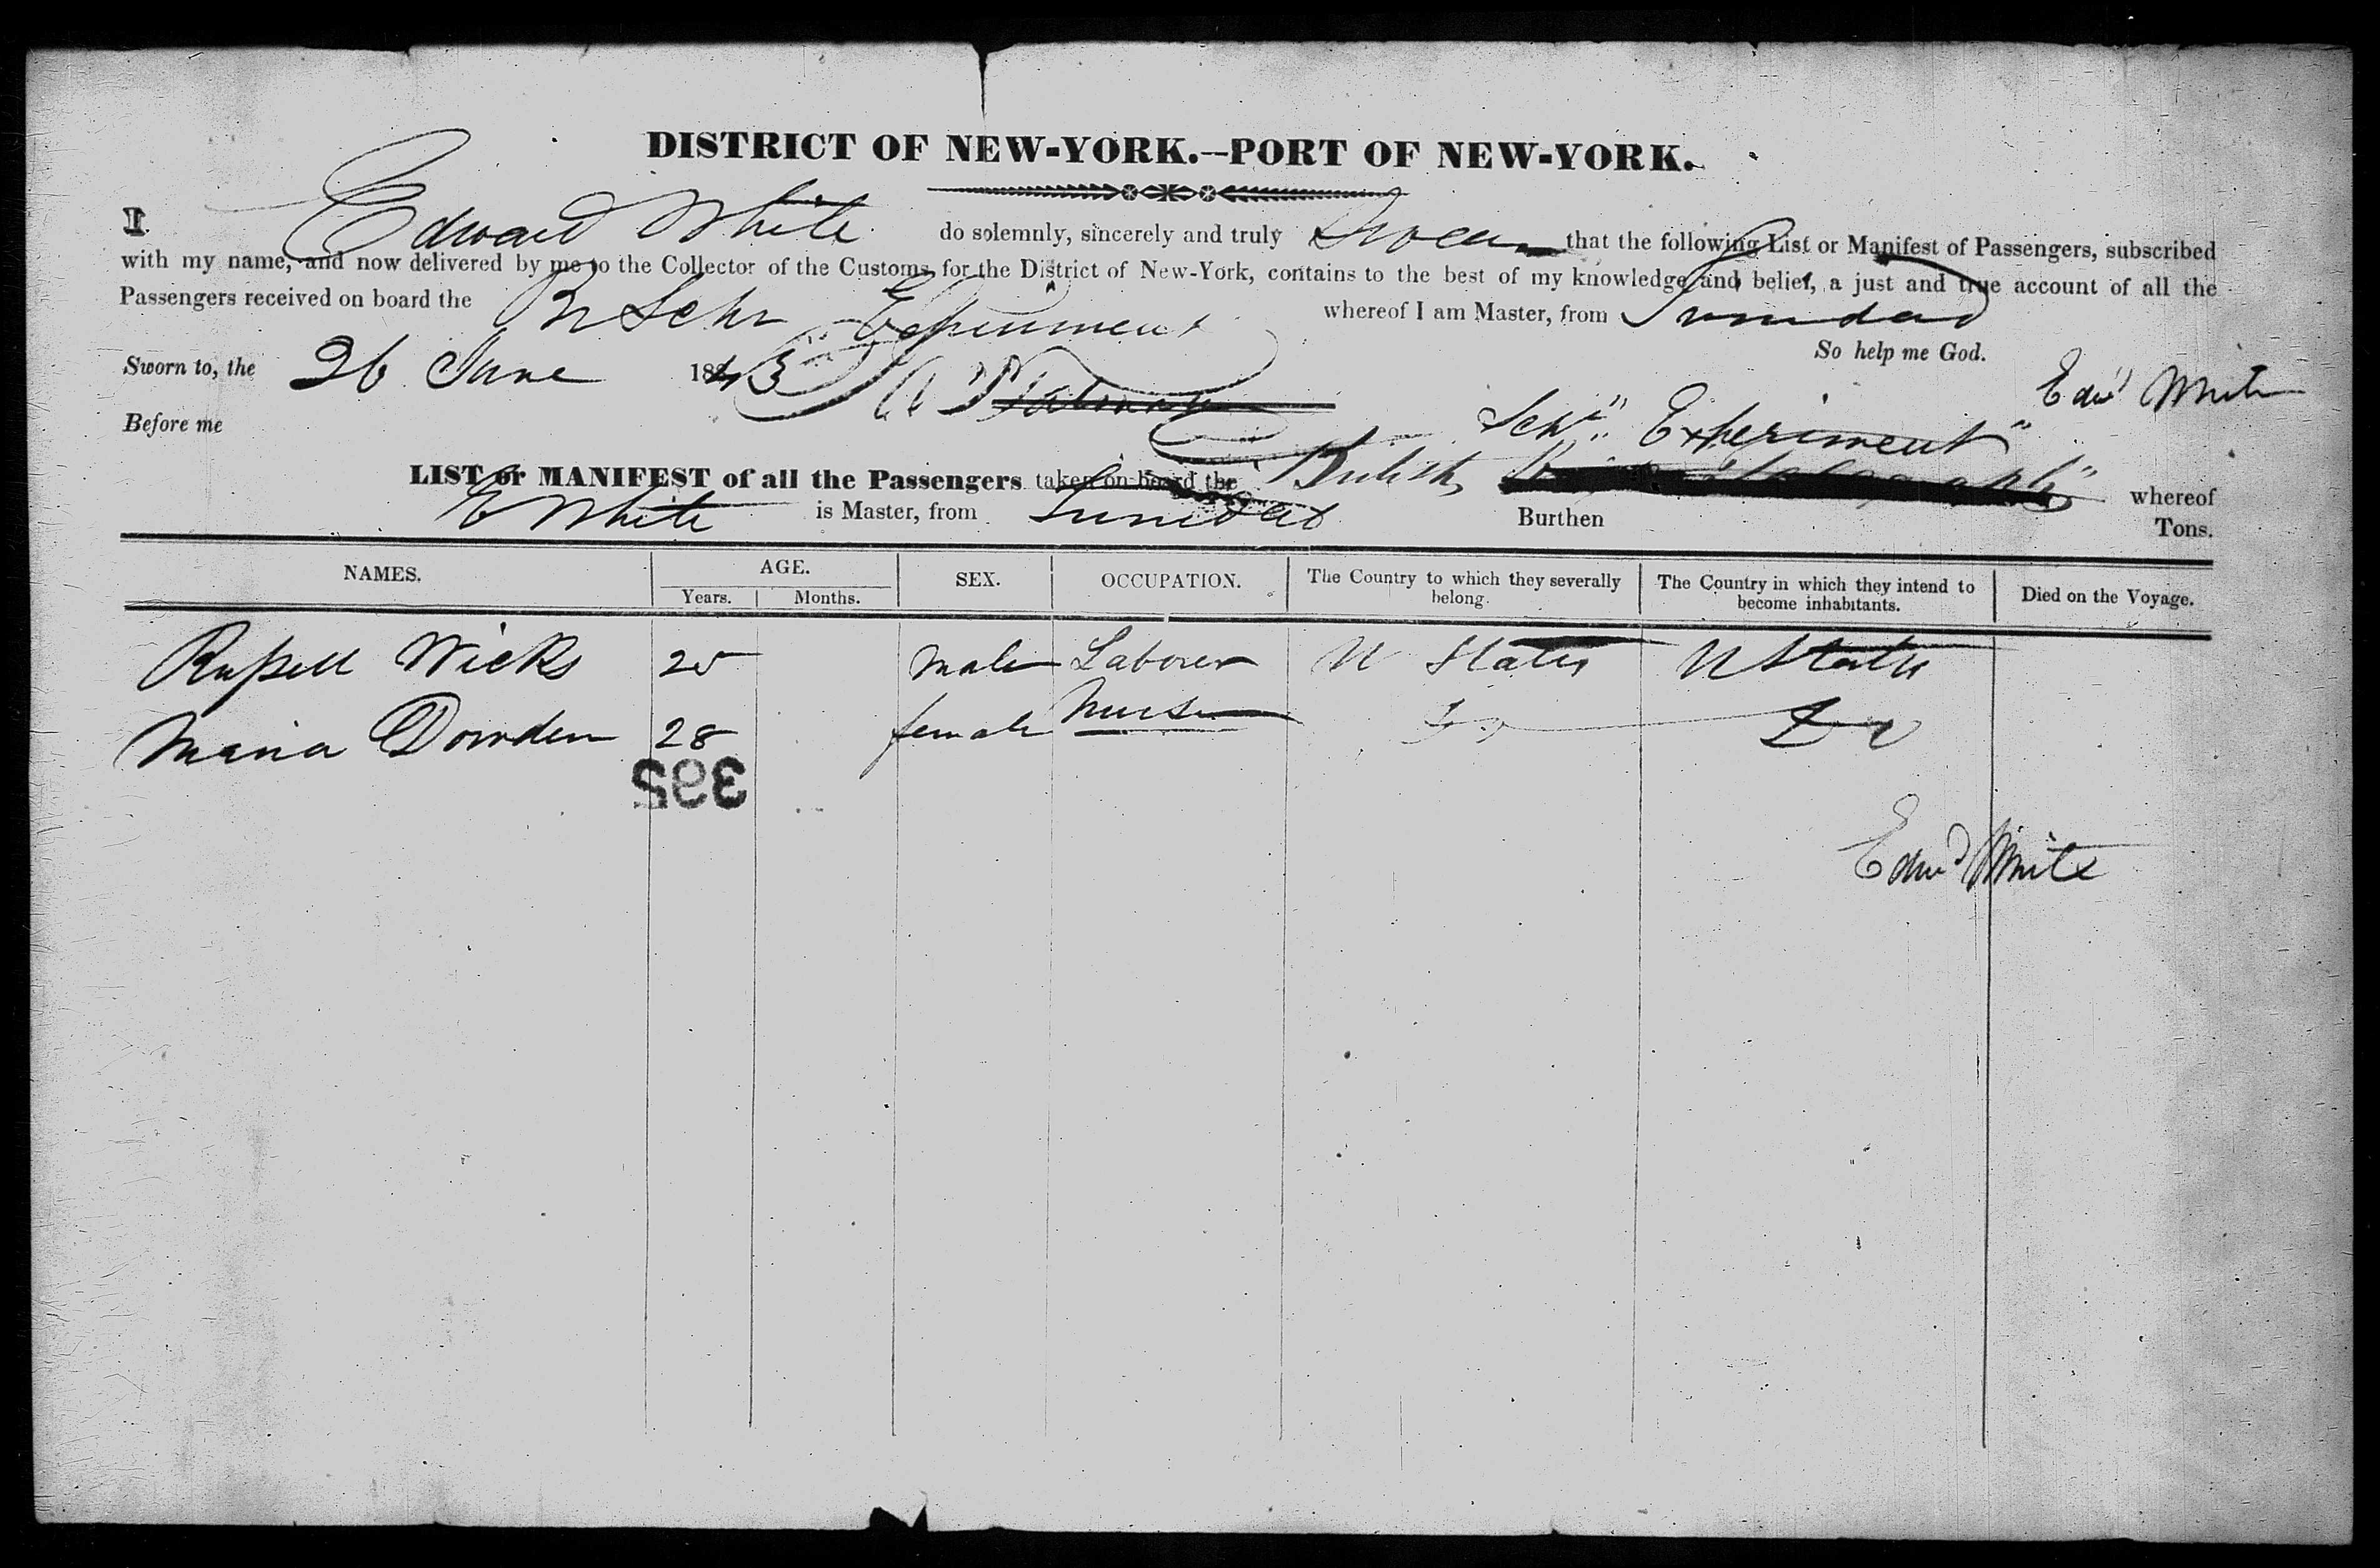 DISTRICT OF NEW-YORK.—PORT OF NEW-YORK.
I Edward White do solemnly, sincerely and truly Swear that the following List or Manifest of Passengers, subscribed
with my name, and now delivered by me to the Collector of the Customs for the District of New-York, contains to the best of my knowledge and belief, a just and true account of all the
Passengers received on board the Br Schr Experiment whereof I am Master, from Trinidad
So help me God.
Sworn to, the 26 June 1843
Edwd White
Before me
Schr "Experiment"
LIST or MANIFEST of all the Passengers taken on board the British whereof
E White is Master, from Trinidad Burthen Tons.
NAMES. AGE. SEX. OCCUPATION. The Country to which they severally belong. The Country in which they intend to become inhabitants. Died on the Voyage.
Years. Months.
Russell Wicks 25 Male Laborer U States U States
Maria Dowden 28 female Nurse Do Do
395
Edwd White